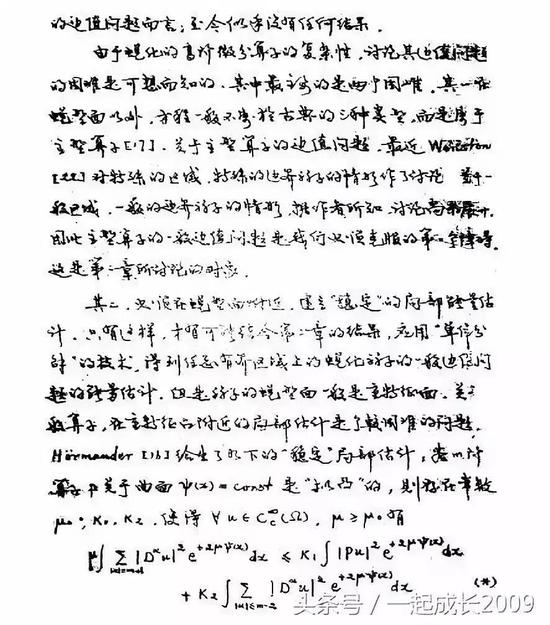 的边值问题而言,至今似乎没有任何结果.
由于蜕化的高阶微分算子的复杂性,讨论其边值问题
的困难是可想而知的.其中最主要的是两个困难.其一在
蜕型面以外,方程一般不属于古典的三种类型,而是属于
主型算子[17].关于主型算子的边值问题,最近
[22]对特殊的区域,特殊的边界算子的情形作了讨论 至于一
般区域,一般的边界算子的情形,据作者所知,讨论尚未展开.
因此主型算子的一般边值问题是我们必须克服的第一个障碍.
这是第二章所讨论的对象.
其二,必须在蜕型面附近,建立"稳定"的局部能量估
计.只有这样,才有可能结合第二章的结果,应用"单位分
解"的技术,得到任意有界区域上的蜕化算子的一般边值问
题的能量估计.但是算子的蜕型面一般是重特征面.关于
般算子,在重特征面附近的局部估计是个较困难的问题.
Hörmander [16]给出了如下的"稳定"局部估计,若m阶
算子P关于曲面 ψ(x)=const 是"拟凸"的,则存在常数
μ₀, K₁, K₂,使得 ∀u∈C_c^∞(Ω), μ≥μ₀ 有
μ∫ Σ_{|α|=m-1} |D^α u|² e^{+2μψ(x)} dx ≤ K₁∫|Pu|² e^{+2μψ(x)} dx
+ K₂∫ Σ_{|α|≤m-2} |D^α u|² e^{+2μψ(x)} dx (*)
头条号 / 一起成长2009